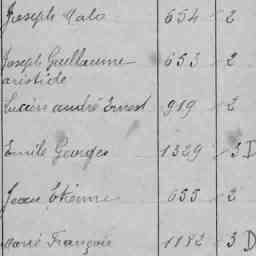 Joseph Malo 654 2
Joseph Guillaume 653 2
aristide
Lucien andré Ernest 989 2
Emile Georges 1329 3 D
Jean Etienne 655 2
Marie François 1182 3 D